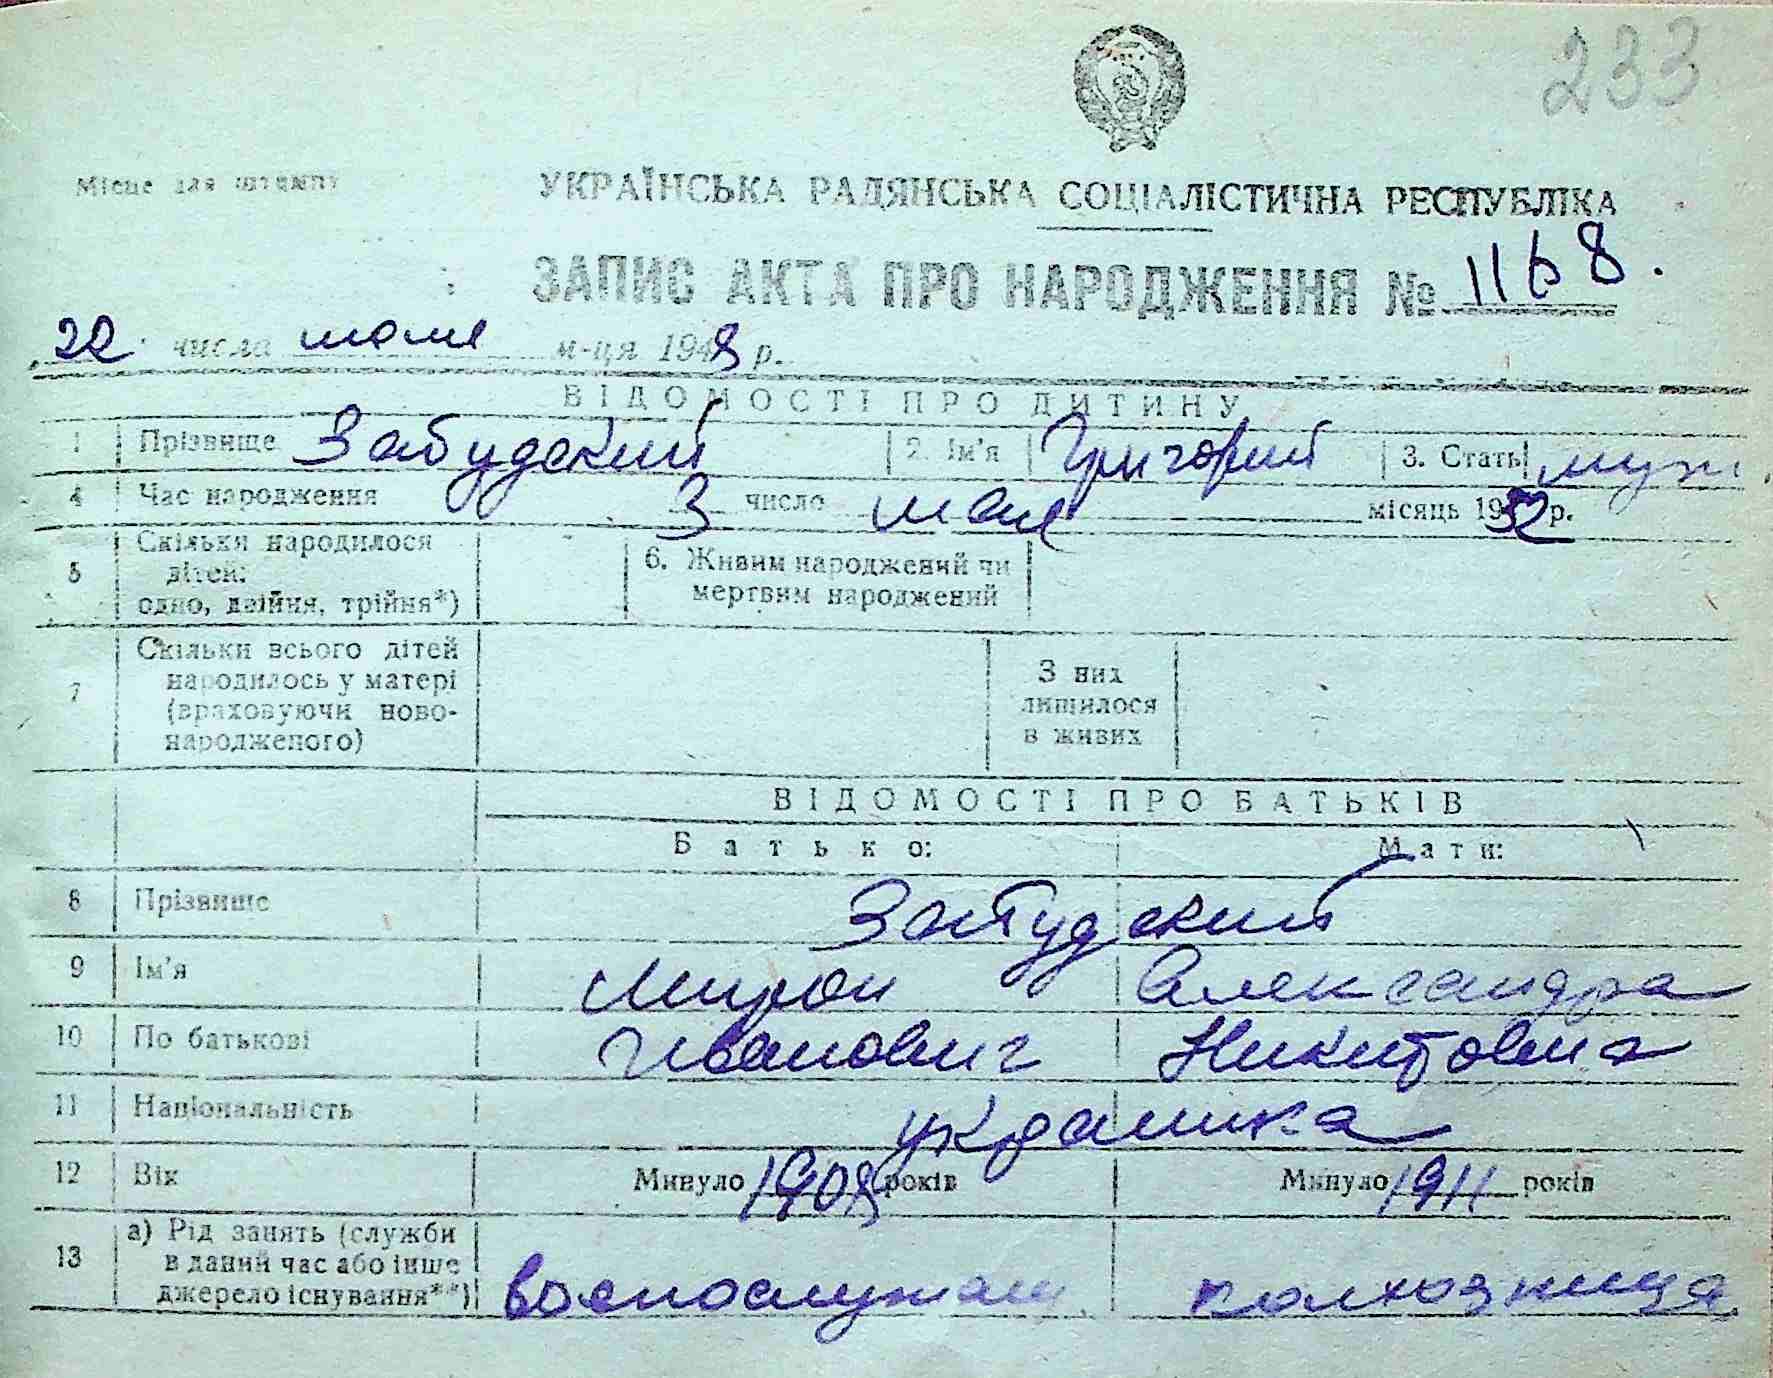 233
Місце для штампу
УКРАЇНСЬКА РАДЯНСЬКА СОЦІАЛІСТИЧНА РЕСПУБЛІКА
ЗАПИС АКТА ПРО НАРОДЖЕННЯ № 1168.
22 числа м-ця 1948 р.
ВІДОМОСТІ ПРО ДИТИНУ
1 Прізвище Забудский 2. Ім'я Григорий 3. Стать муж.
4 Час народження 3 число мая місяць 1932 р.
5 Скільки народилося дітей: одно, двійня, трійня*) 6. Живим народжений чи мертвим народжений
7 Скільки всього дітей народилось у матері (враховуючи новонародженого) З них лишилося в живих
ВІДОМОСТІ ПРО БАТЬКІВ
Батько: Мати:
8 Прізвище Забудский
9 Ім'я Мирон Александра
10 По батькові Иванович Никитовна
11 Національність украинка
12 Вік Минуло 1908 років Минуло 1911 років
13 а) Рід занять (служби в даний час або інше джерело існування**) военослужащ. колхозница.